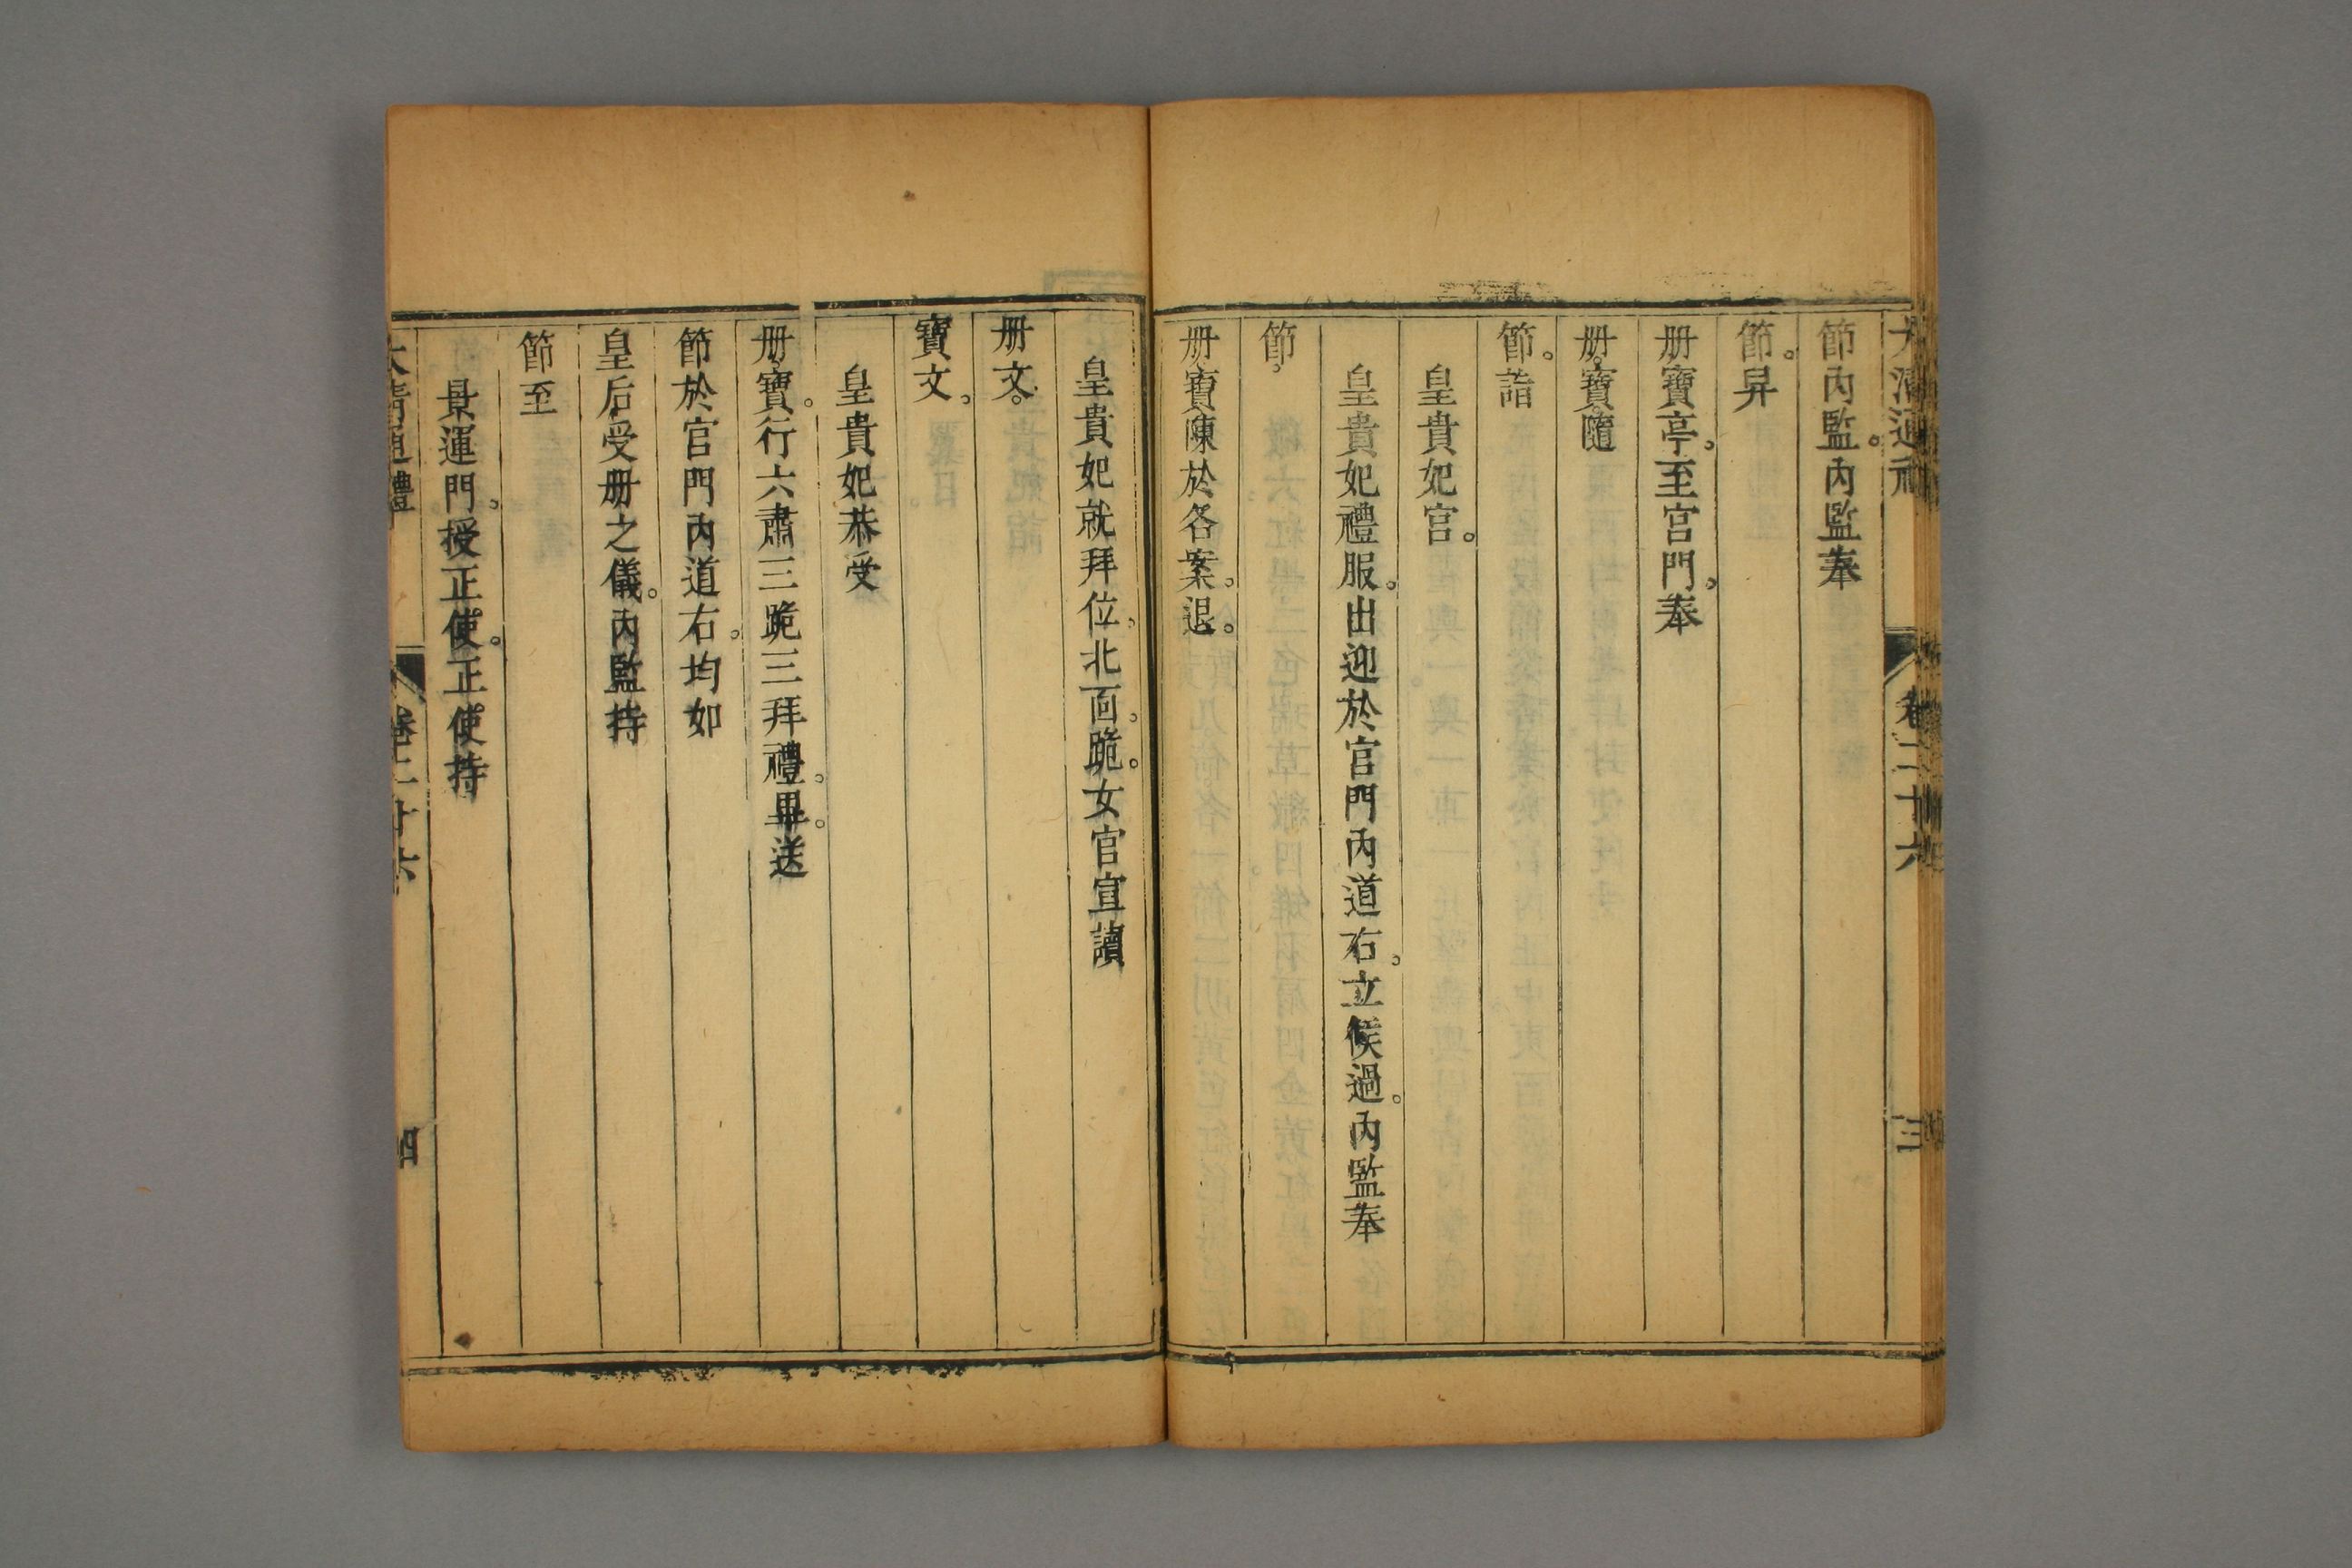 大清通禮
卷二十六
三
節內監。內監奉
節。昇
册寶亭。至宮門。奉
册。寶隨
節。詣
皇貴妃宮。
皇貴妃禮服。出迎於宮門內道右。立候過。內監奉
節。
册寶陳於各案。退。
皇貴妃就拜位。北面。跪。女官宣讀
册文。
寶文。
皇貴妃恭受
册寶。行六肅三跪三拜禮。畢。送
節於宮門內道右。均如
皇后受册之儀。內監持
節至
景運門。授正使。正使持
大清通禮
卷二十六
四